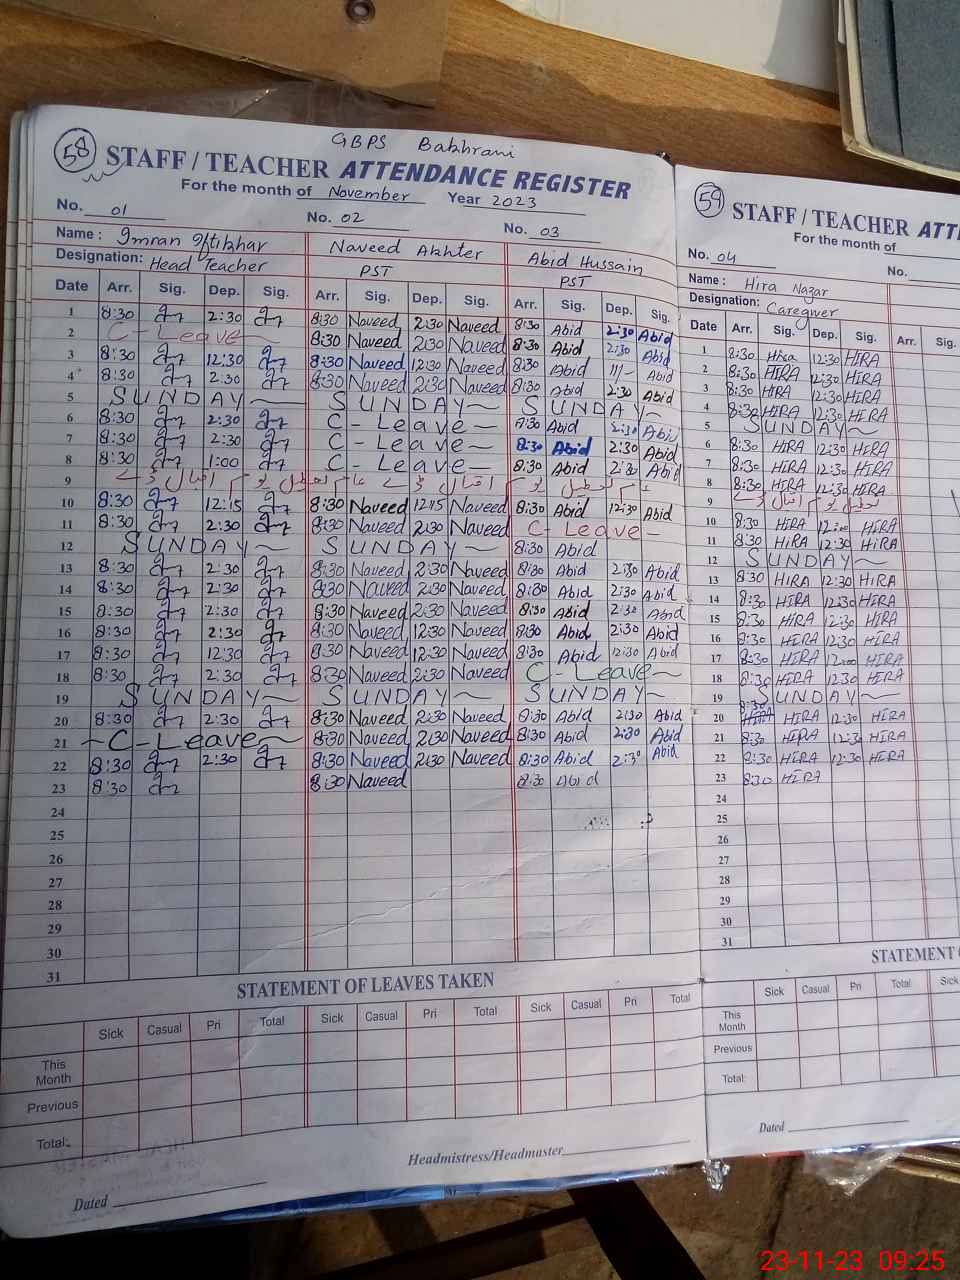 GBPS Bakhrani
58 STAFF / TEACHER ATTENDANCE REGISTER
For the month of November Year 2023
No. 01 No. 02 No. 03
Name : Imran Iftikhar Naveed Akhter Abid Hussain
Designation: Head Teacher PST PST
Date Arr. Sig. Dep. Sig. Arr. Sig. Dep. Sig. Arr. Sig. Dep. Sig.
1 8:30 2:30 8:30 Naveed 2:30 Naveed 8:30 Abid 2:30 Abid
2 C-Leave 8:30 Naveed 2:30 Naveed 8:30 Abid 2:30 Abid
3 8:30 12:30 8:30 Naveed 12:30 Naveed 8:30 Abid 11/- Abid
4 8:30 2:30 8:30 Naveed 2:30 Naveed 8:30 Abid 2:30 Abid
5 SUNDAY SUNDAY SUNDAY
6 8:30 2:30 C-Leave 8:30 Abid 2:30 Abid
7 8:30 2:30 C-Leave 8:30 Abid 2:30 Abid
8 8:30 1:00 C-Leave 8:30 Abid 2:30 Abid
9 عام تعطیل یوم اقبال ڈے
10 8:30 12:15 8:30 Naveed 12:15 Naveed 8:30 Abid 12:30 Abid
11 8:30 2:30 8:30 Naveed 2:30 Naveed C-Leave
12 SUNDAY SUNDAY 8:30 Abid
13 8:30 2:30 8:30 Naveed 2:30 Naveed 8:30 Abid 2:30 Abid
14 8:30 2:30 8:30 Naveed 2:30 Naveed 8:30 Abid 2:30 Abid
15 8:30 2:30 8:30 Naveed 2:30 Naveed 8:30 Abid 2:30 Abid
16 8:30 2:30 8:30 Naveed 12:30 Naveed 8:30 Abid 2:30 Abid
17 8:30 12:30 8:30 Naveed 12:30 Naveed 8:30 Abid 12:30 Abid
18 8:30 2:30 8:30 Naveed 2:30 Naveed C-Leave
19 SUNDAY SUNDAY SUNDAY
20 8:30 2:30 8:30 Naveed 2:30 Naveed 8:30 Abid 2:30 Abid
21 C-Leave 8:30 Naveed 2:30 Naveed 8:30 Abid 2:30 Abid
22 8:30 2:30 8:30 Naveed 2:30 Naveed 8:30 Abid 2:30 Abid
23 8:30 8:30 Naveed 8:30 Abid
24
25
26
27
28
29
30
31
STATEMENT OF LEAVES TAKEN
Sick Casual Pri Total Sick Casual Pri Total Sick Casual Pri Total
This Month
Previous
Total:
Headmistress/Headmaster
Dated
59 STAFF / TEACHER ATT
For the month of
No. 04 No.
Name : Hira Nazar
Designation: Caregiver
Date Arr. Sig. Dep. Sig. Arr. Sig.
1 8:30 Hira 12:30 HIRA
2 8:30 HIRA 12:30 HIRA
3 8:30 HIRA 12:30 HIRA
4 8:30 HIRA 12:30 HIRA
5 SUNDAY
6 8:30 HIRA 12:30 HIRA
7 8:30 HIRA 12:30 HIRA
8 8:30 HIRA 12:30 HIRA
9 تعطیل یوم اقبال ڈے
10 8:30 HIRA 12:00 HIRA
11 8:30 HIRA 12:30 HIRA
12 SUNDAY
13 8:30 HIRA 12:30 HIRA
14 8:30 HIRA 12:30 HIRA
15 8:30 HIRA 12:30 HIRA
16 8:30 HIRA 12:30 HIRA
17 8:30 HIRA 12:00 HIRA
18 8:30 HIRA 12:30 HIRA
19 SUNDAY
20 8:30 HIRA 12:30 HIRA
21 8:30 HIRA 12:30 HIRA
22 8:30 HIRA 12:30 HIRA
23 8:30 HIRA
24
25
26
27
28
29
30
31
STATEMENT
Sick Casual Pri Total Sick
This Month
Previous
Total:
Dated
23-11-23 09:25